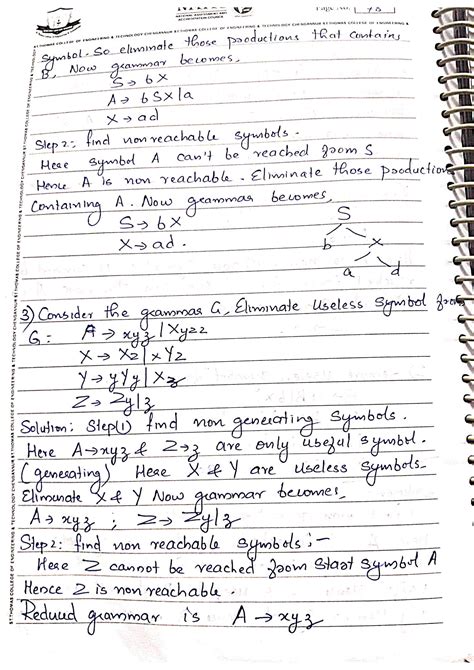 NATIONAL ASSESSMENT AND
ACCREDITATION COUNCIL
Page No.
ST THOMAS COLLEGE OF ENGINEERING & TECHNOLOGY CHENGANNUR
symbol. So eliminate those productions that contains
B, Now grammar becomes,
S → bX
A → bSX|a
X → ad
Step 2: find non reachable symbols.
Here symbol A can't be reached from S
Hence A is non reachable. Eliminate those production
Containing A. Now grammar becomes,
S → bX
X → ad.
S
b X
a d
3) Consider the grammar G, Eliminate Useless Symbol from
G: A → xyz | Xyzz
X → Xz | xYz
Y → yYy | Xz
Z → Zy|z
Solution: Step(1) find non generating symbols.
Here A→xyz & Z→z are only useful symbol.
(generating) Here X & Y are useless symbols.
Eliminate X & Y Now grammar becomes,
A → xyz ; Z → Zy|z
Step 2: find non reachable symbols :-
Here Z cannot be reached from Start Symbol A
Hence Z is non reachable.
Reduced grammar is A → xyz